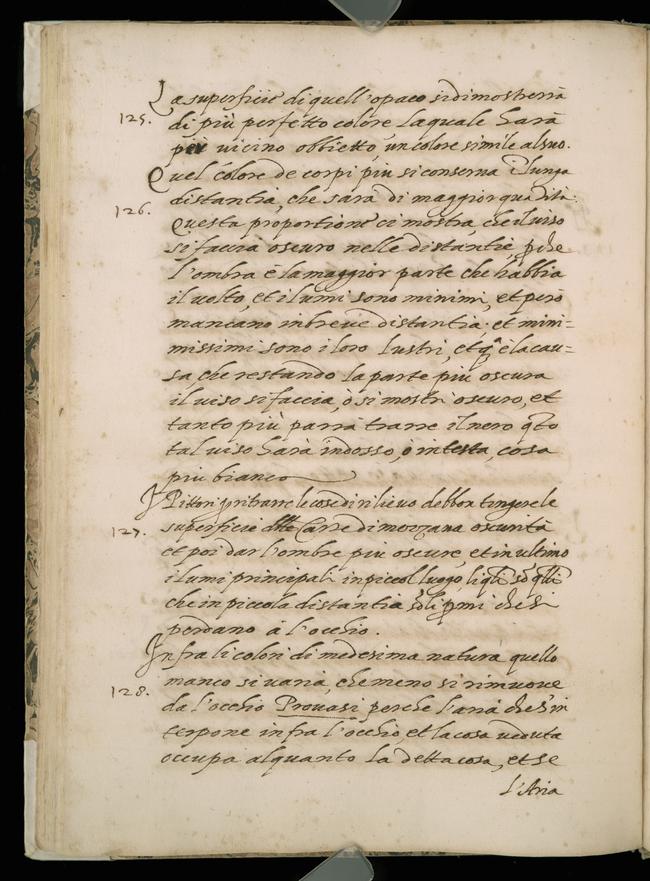 La superficie di quell'opaco si dimostrerrà
125. di più perfetto colore laquale harà
più uicino obbietto un colore simile al suo.
Quel colore de corpi più si conserua ĩ lunga
distantia, che sarà di maggior quãtità.
126. Questa proportione ci mostra, che il uiso
si faccia oscuro nelle distantie, ꝑche
l'ombra è la maggior parte che habbia
il uolto, et i lumi sono minimi, et però
mancano in breue distantia; et mini=
missimi sono i loro lustri, et q.ª è la cau=
sa, che restando la parte più oscura
il uiso si faccia, ò si mostri oscuro, et
tanto più parrà trarre il nero q̃to
tal uiso harà indosso, ò in testa, cosa
più bianca
I Pittori ꝑ ritrarre le cose di rilieuo debbon tingere le
127. superficie delle Carte di mezzana oscurità
et poi dar l'ombre più oscure, et in ultimo
i lumi principali in piccol luogo, li q̃li sõ q̃lli
che in piccola distantia sõ li ꝑmi che si
perdano à l'occhio.
Infra li colori di medesima natura quello
128. manco si uaria, che meno si rimuoue
da l'occhio Prouasi perche l'aria che s'in
terpone infra l'occhio, et la cosa ueduta
occupa alquanto la detta cosa, et se
l'Aria